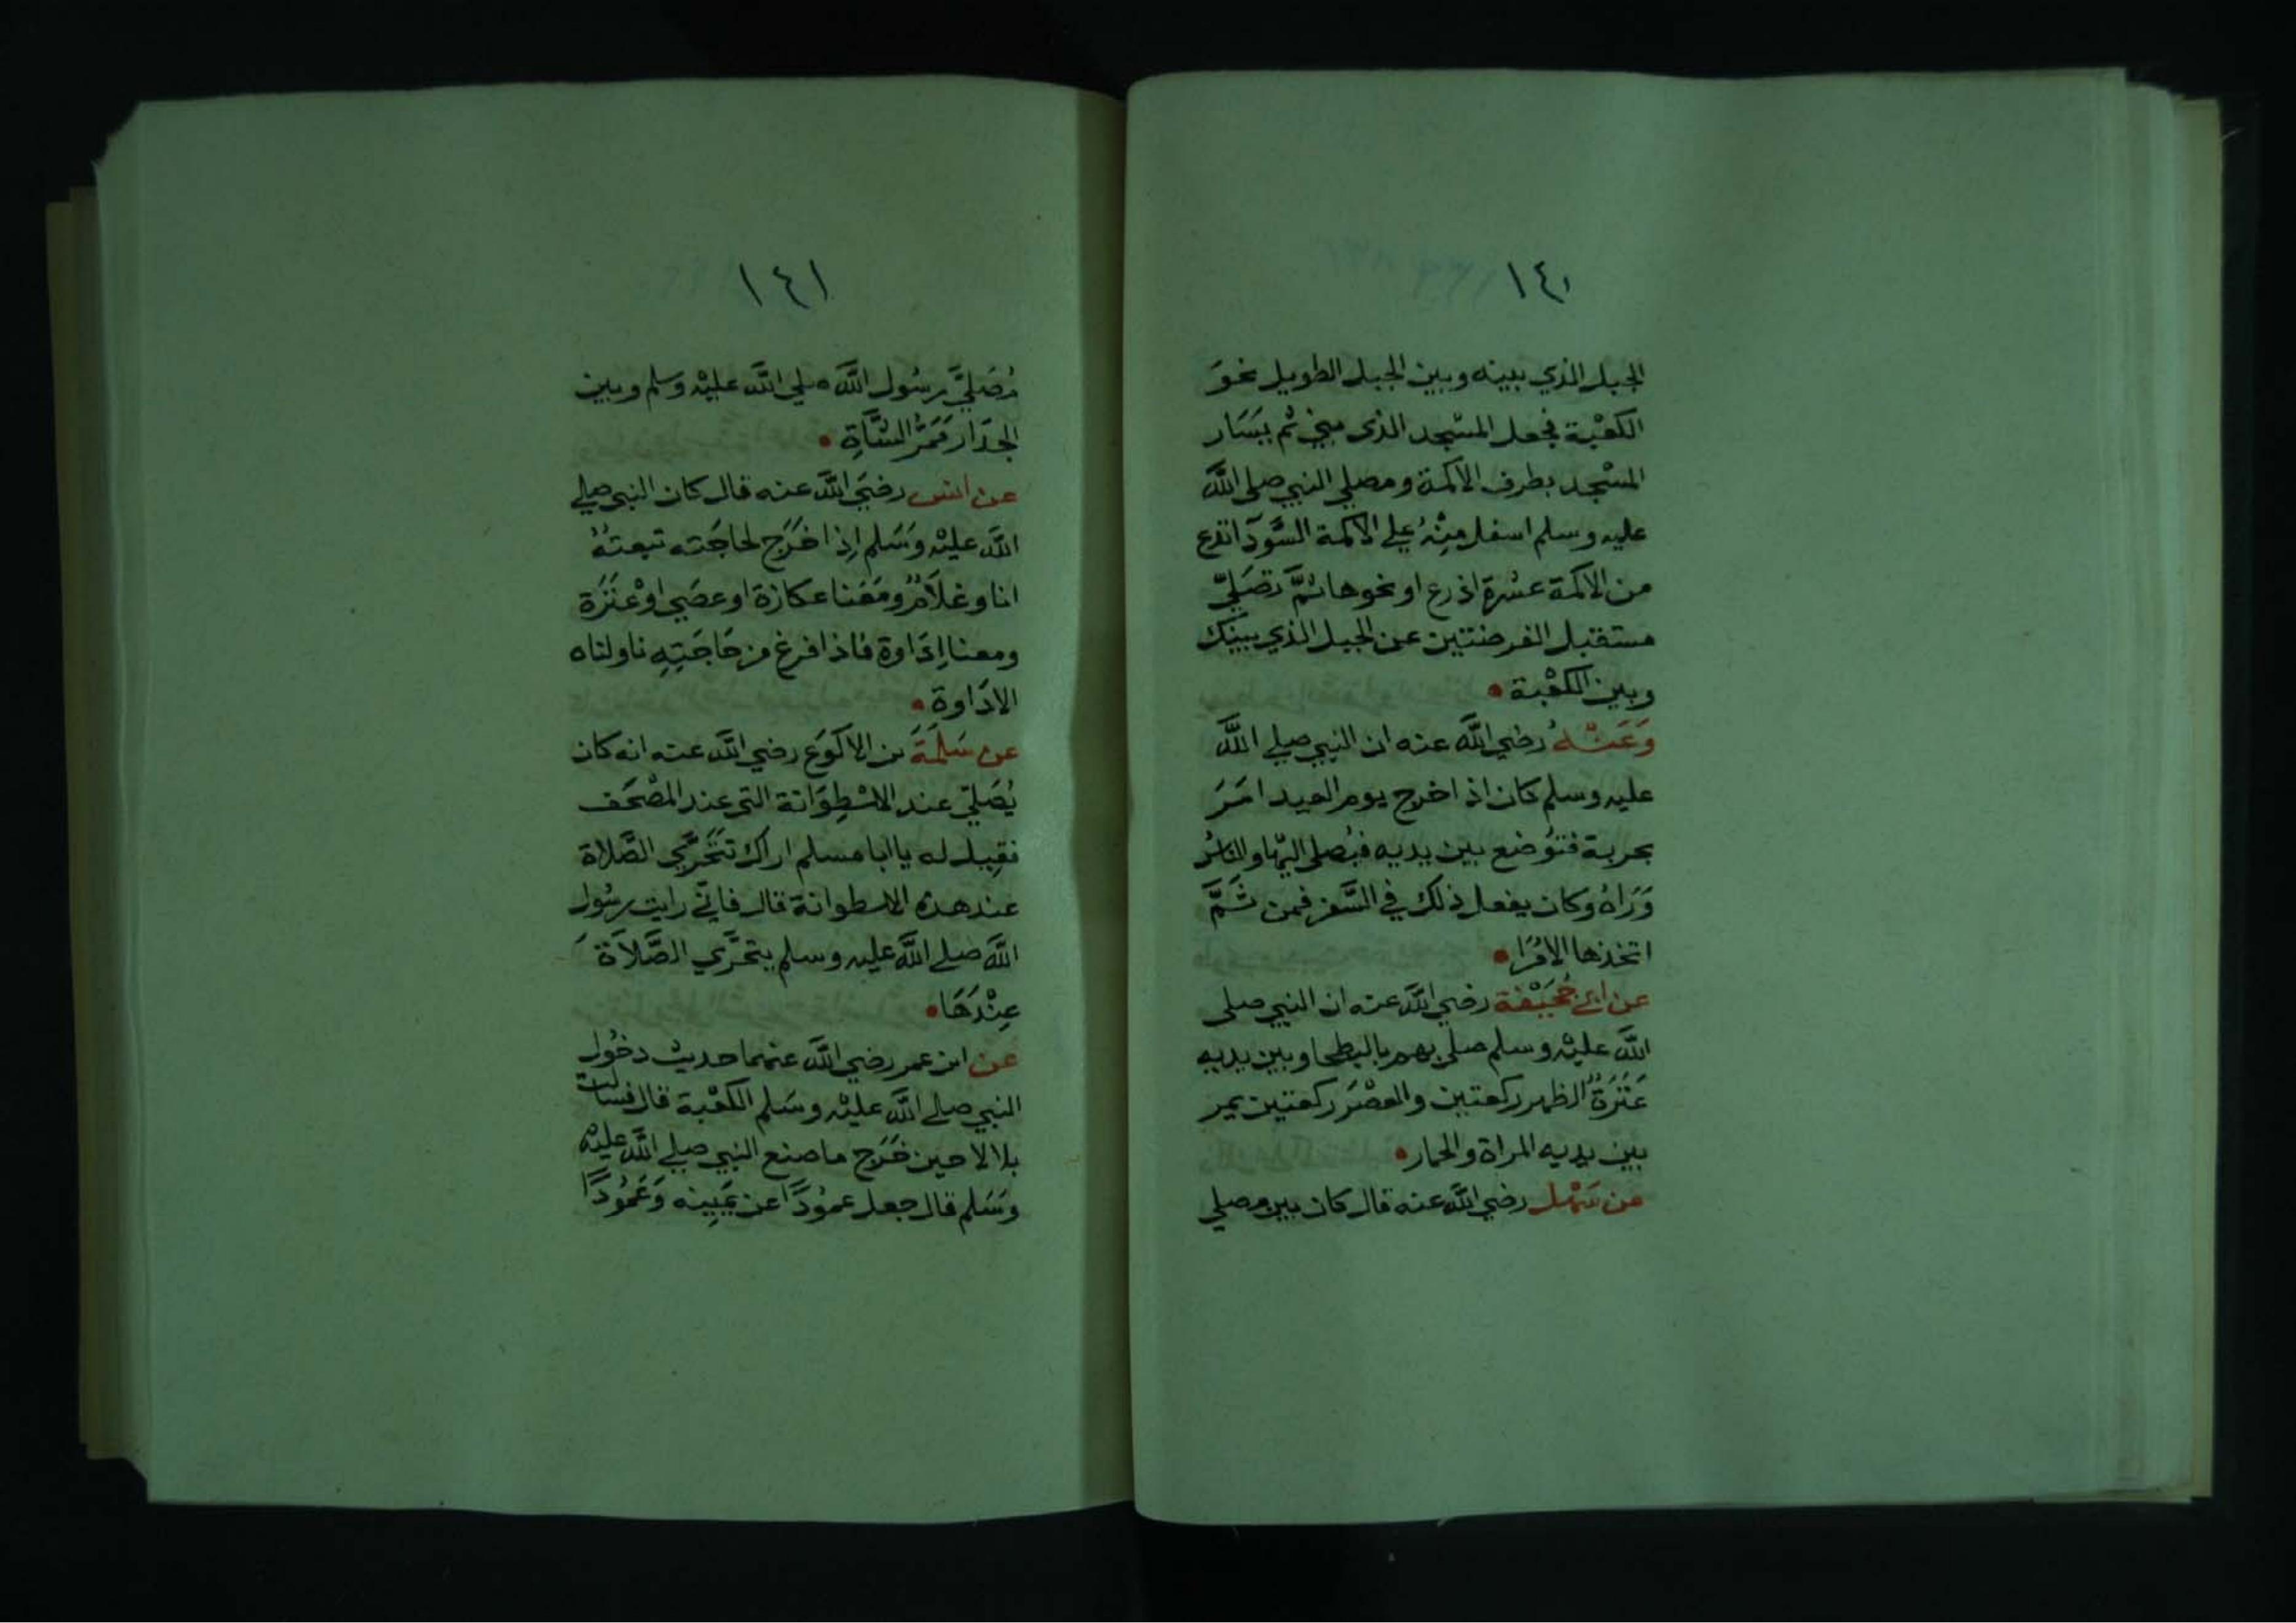 ١٤٠
الجبل الذي بينه وبين الجبل الطويل نحوَ
الكعْبة فجعل المسْجد الذى مبني ثم بيَسَار
المسْجد بطرف الاكمة ومصلي النبي صلى اللَّه
عليه وسلم اسفل منْهُ علي الاكمة السَّودَآ تدع
من الاكمَة عشرة اذرع او نحوها ثمَّ تصَليّ
مستقبل الفرضتين عن الجبل الذي بينَك
وبين الكعْبة
وَعَنْهُ رضي اللَّه عنه ان النبي صلي اللَّه
عليه وسلم كان اذا خرج يوم العيد امَرَ
بحربة فتوُضع بين يديه فيُصلى اليْها والناسُ
وَرَاهُ وكان يفعل ذلك في السَّفر فمن ثَمَّ
اتخذها الامُرَا
عن ابي جُحَيْفة رضي اللَّه عنه ان النبي صلى
اللَّه عليْه وسلم صلى بهم بالبطحا وبين يديه
عَنَزَةٌ الظهر ركعتين والعصْرَ ركعتين يمر
بين يديه المراة والحمار
عن سَهْل رضي اللَّه عنه قال كان بين مصلي
١٤١
مُصَليَّ رسُول اللَّه صلي اللَّه عليْه وسلم وبين
الجدَار مَمَرُّ الشَّاةِ
عن انس رضيَ اللَّه عنه قال كان النبي صلي
اللَّه عليْه وسَلم اِذا خَرَج لحاجَته تبعتهُ
انا وغلَامٌ ومَعَنا عكازة او عصَى اوْ عنَزَة
ومعنا اِدَاوة فاذا فرغ من حَاجَتِهِ ناولناه
الادَاوة
عن سَلَمَةَ بن الاكوَع رضي اللَّه عنه انه كان
يُصَليّ عند الاسْطِوَانة التي عند المصْحَف
فقِيل له يا ابا مسلم اراك تتَحَرَّي الصَّلاة
عند هذه الاسطوانة قال فاني رايت رسُول
اللَّه صلي اللَّه عليه وسلم يتحَرَّي الصَّلَاة
عِنْدَهَا
عن ابن عمر رضي اللَّه عنهما حديث دخُول
النبي صلي اللَّه عليْه وسَلم الكعْبة قال فسالت
بلالا حين خَرَج ما صنع النبي صلي اللَّه عليْه
وسَلم قال جعل عموُدًا عن يَمِينه وَعَموُدًا